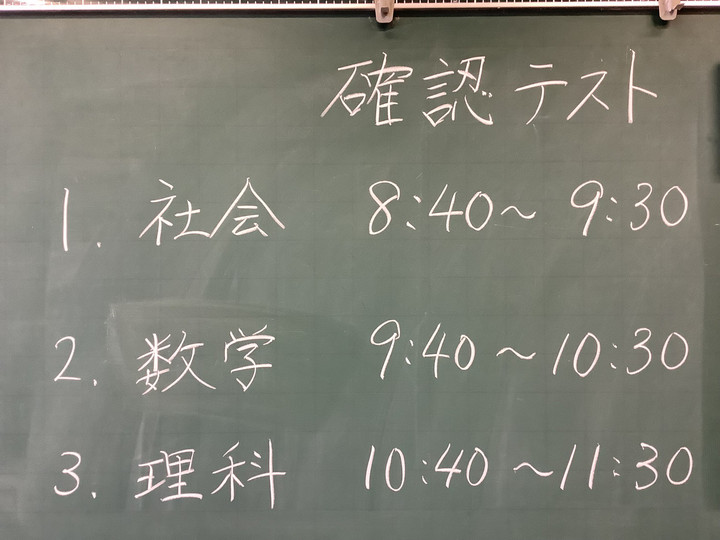 確認テスト
1. 社会 8:40～9:30
2. 数学 9:40～10:30
3. 理科 10:40～11:30